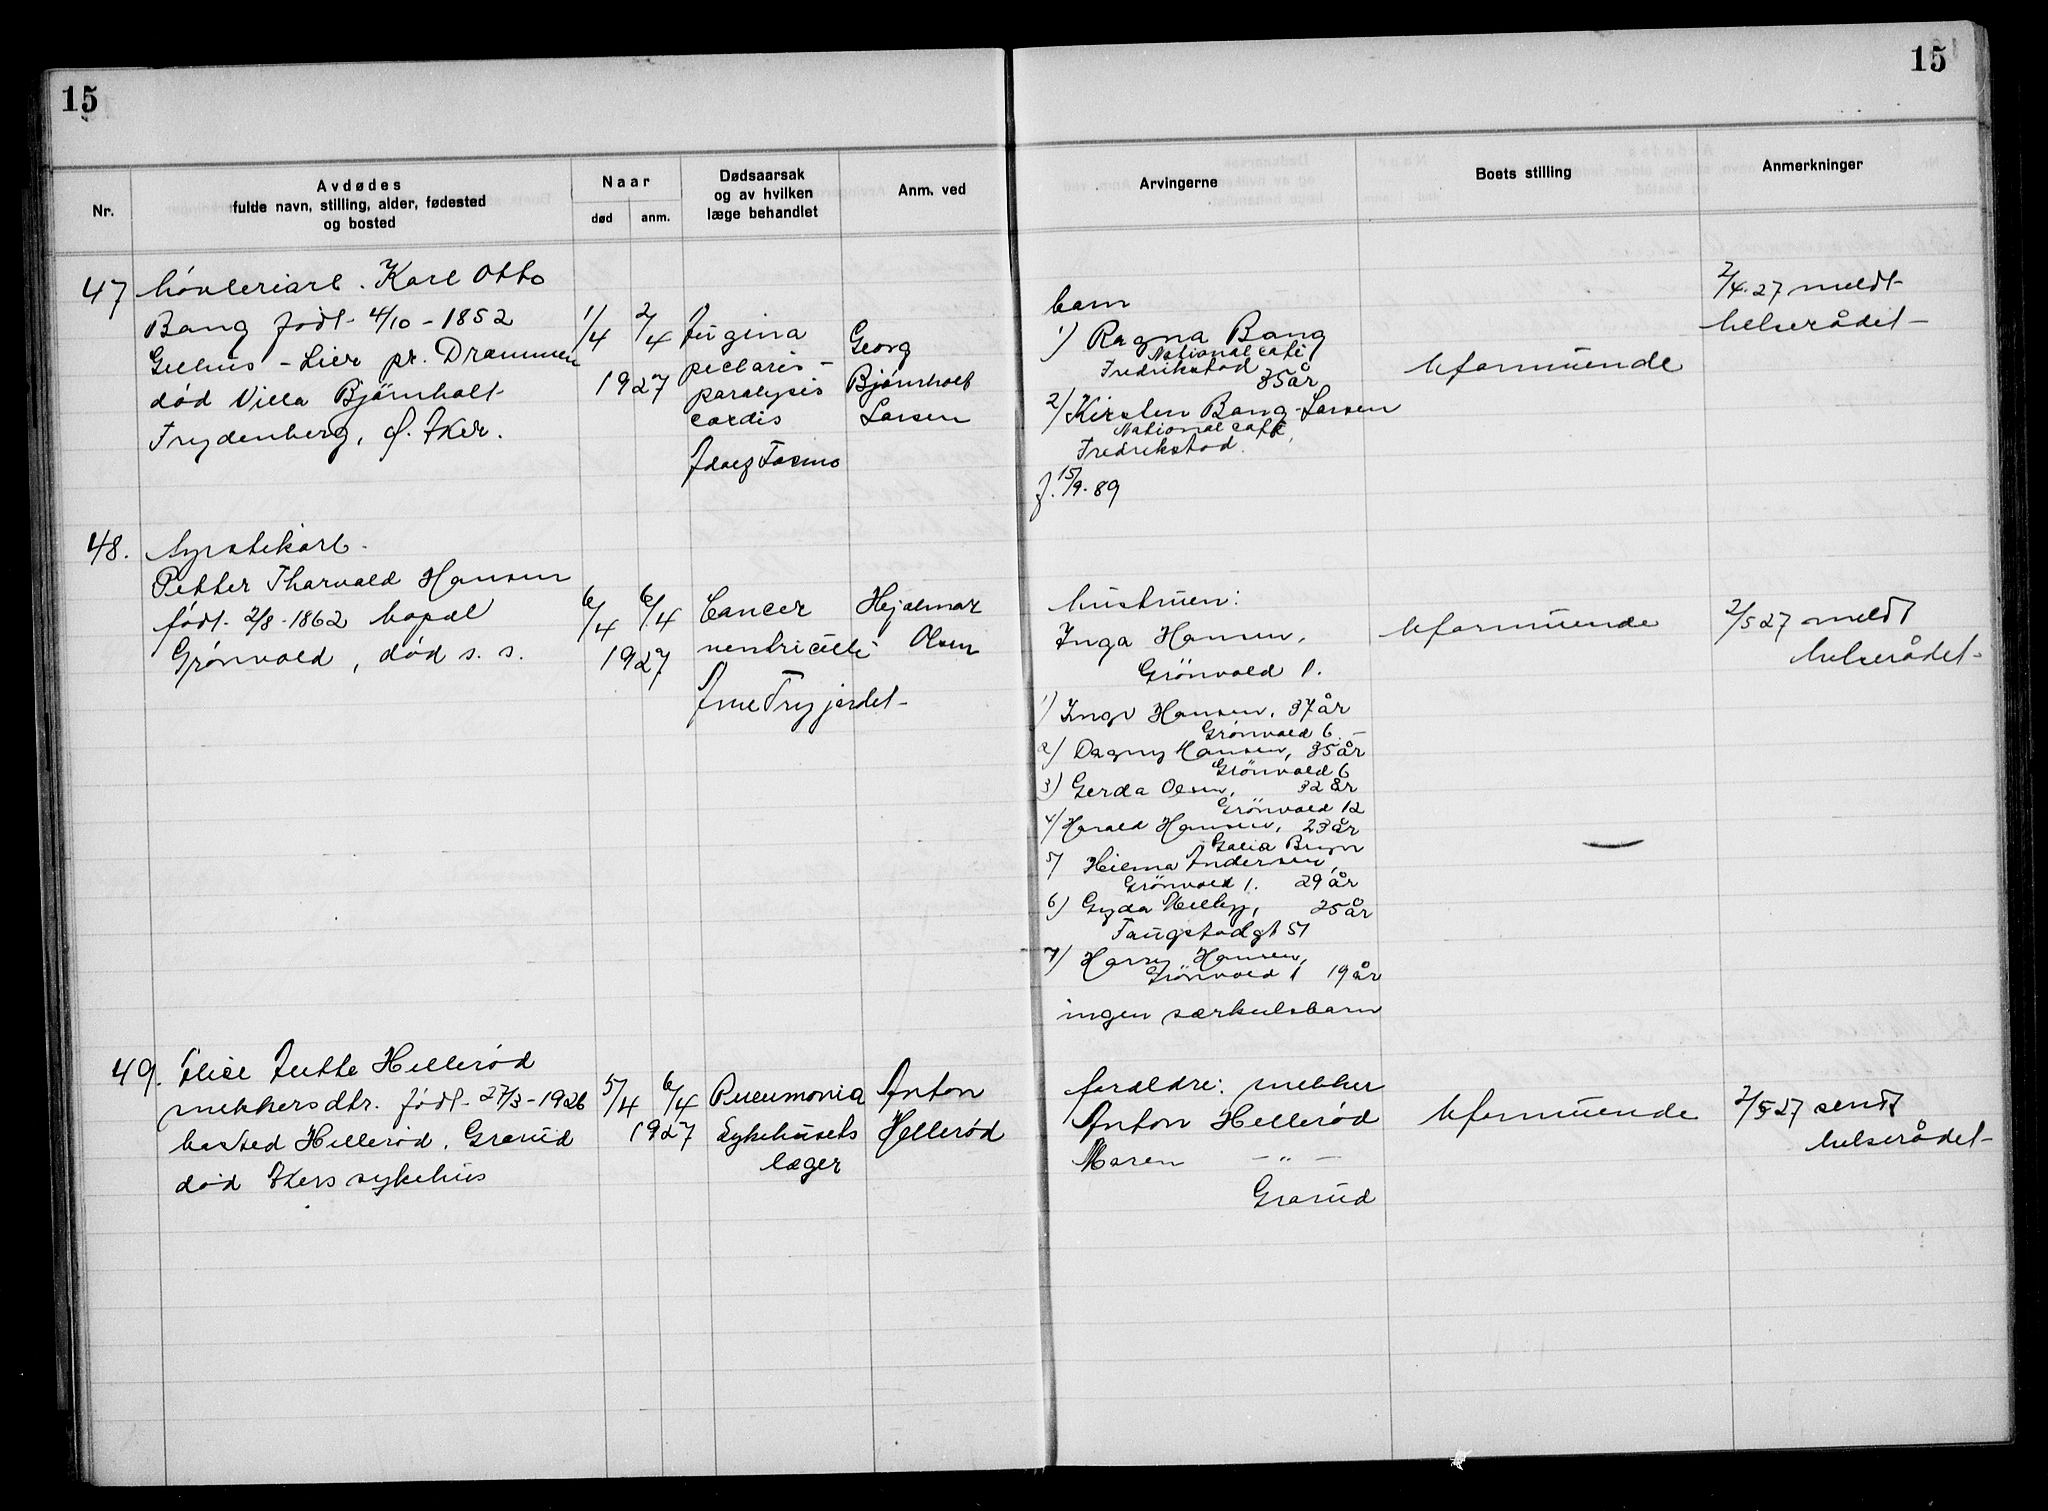 15
15
Nr.
Avdødes
fulde navn, stilling, alder, fødested
og bosted
Naar
død
anm.
Dødsaarsak
og av hvilken
læge behandlet
Anm. ved
Arvingerne
Boets stilling
Anmerkninger
47 høvleriarb. Karl Otto
Bang født 4/10 - 1852
Gilhus - Lier pr. Drammen
død Villa Bjørnholt
Frydenberg, Ø. Aker.
1/4 2/4
1927
Angina
pectoris -
paralysis
cordis
Georg
Bjørnholt
Larsen
barn
1) Ragna Bang
National café
Fredrikstad 35 år
2) Kirsten Bang-Larsen
National café,
Fredrikstad.
f. 15/9-89
Uformuende
2/4-27 meldt
helserådet
48. Syrstikarb.
Petter Thorvald Hansen
født 2/8-1862 bopæl
Grønvold, død s. s.
6/4 6/4
1927
Cancer
ventriculi
Hjalmar
Olsen
hustruen:
Inga Hansen,
Grönvold 1.
1) Hansen, 37 år
Grönvold 6.
2) Dagny Hansen, 35 år
Grönvold 6
3) Gerda Olsen, 32 år
Grönvold 12
4) Harald Hansen, 23 år
5) Hilma Andersen,
Grönvold 1. 29 år
6) Gyda 25 år
Taugstadgt 51
7) Harry Hansen,
Grönvold 1 19 år
ingen særkulsbarn
Uformuende
2/5 27 meldt
helserådet
49. Elise Jutte Hellerød
mekkersdtr. født 27/3-1926
bosted Hellerød, Grorud
død Akers sykehus
5/4 6/4
1927
Pneumonia
Sykehusets
læger
Anton
Hellerød
foreldre: mekker
Anton Hellerød
Maren - " -
Grorud
Uformuende
2/5 27 sendt
helserådet